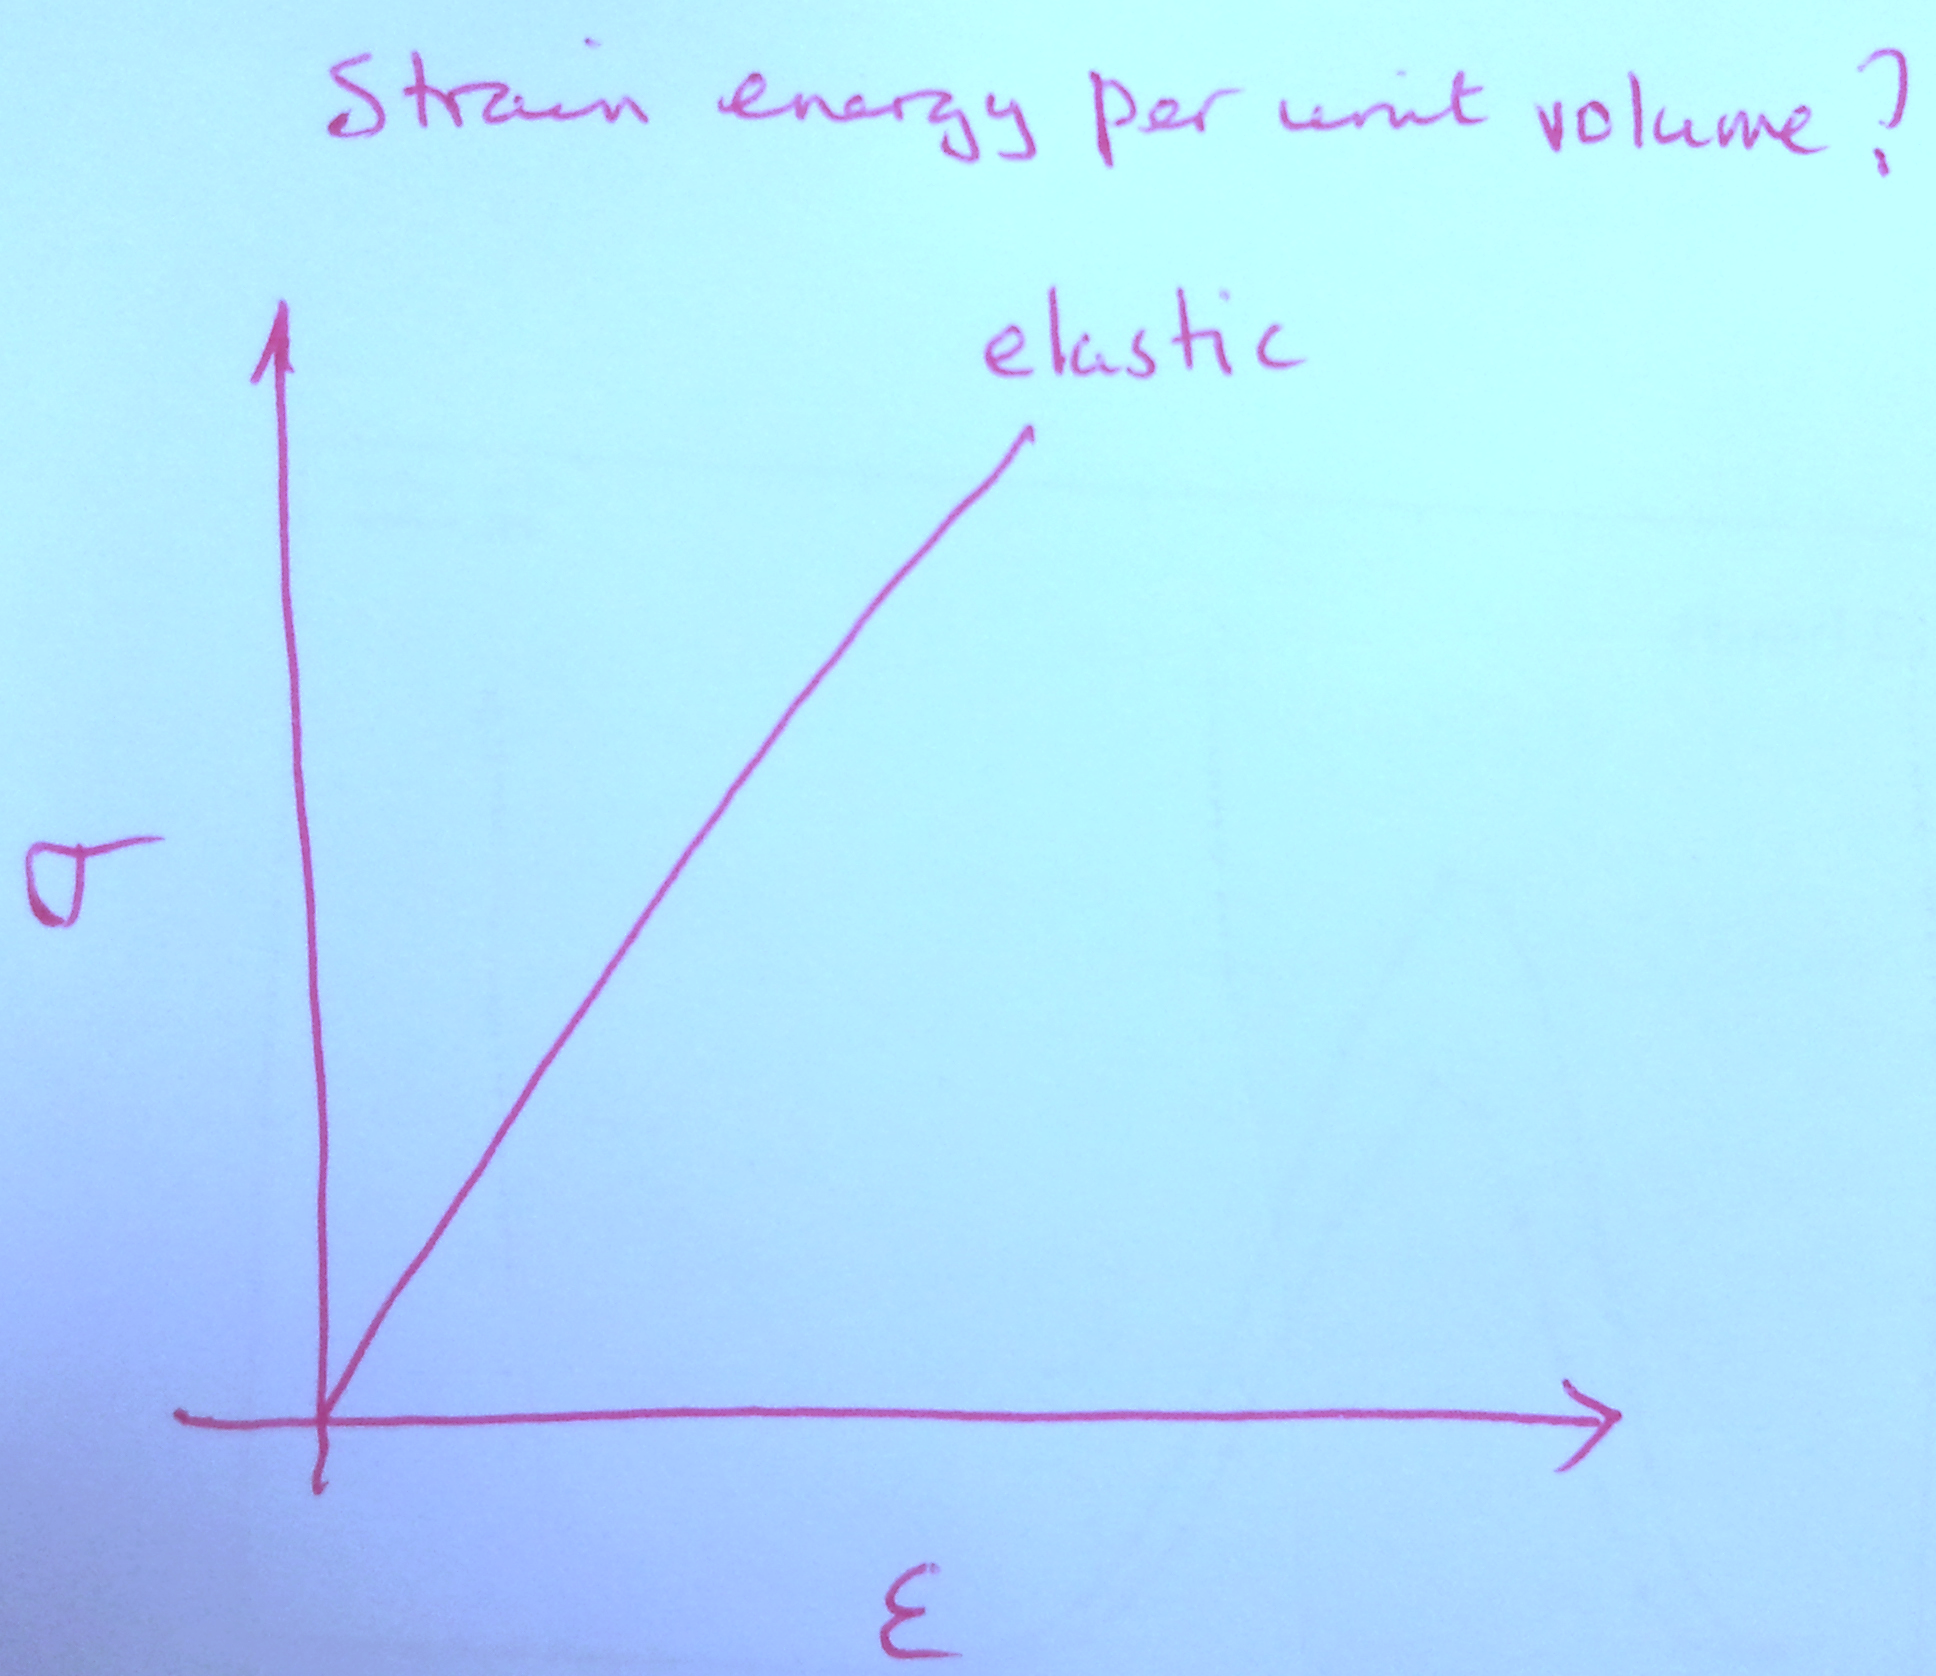 Strain energy per unit volume?
elastic
σ
ε